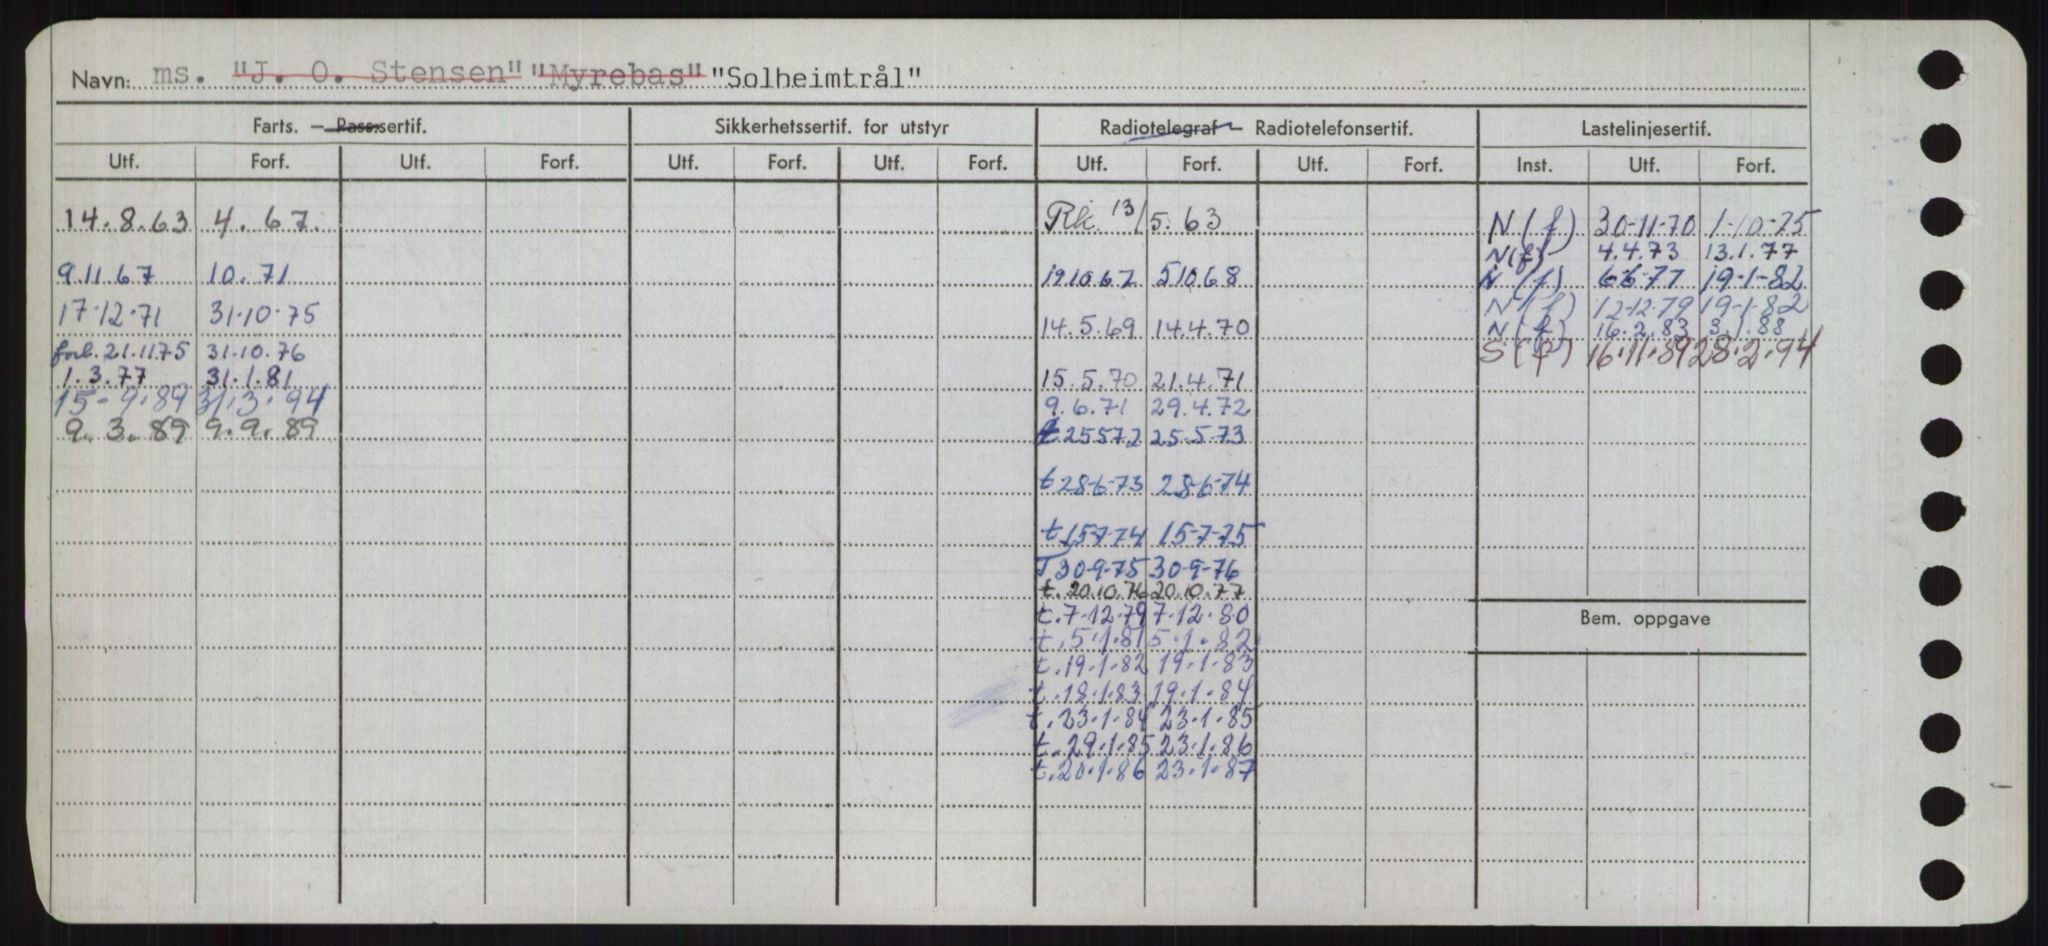 Navn: ms. "J. O. Stensen" "Myrebas" "Solheimtrål"
Farts. — Pass.sertif. Sikkerhetssertif. for utstyr Radiotelegraf — Radiotelefonsertif. Lastelinjesertif.
Utf. Forf. Utf. Forf. Utf. Forf. Utf. Forf. Utf. Forf. Utf. Forf. Inst. Utf. Forf.
14.8.63 4.67.
9.11.67 10.71
17.12.71 31.10.75
forl. 21.11.75 31.10.76
1.3.77 31.1.81
15-9.89 31.3.94
9.3.89 9.9.89
Rk 13/5.63
19.10.67 5.10.68
14.5.69 14.4.70
15.5.70 21.4.71
9.6.71 29.4.72
t 25572 25.5.73
t 28-6-73 28-6-74
t 15-7-74 15-7-75
T 30-9-75 30-9-76
t. 20.10.76 20.10.77
t. 7.12.79 7.12.80
t. 5.1.81 5.1.82
t. 19.1.82 19.1.83
t. 18.1.83 19.1.84
t. 23.1.84 23.1.85
t. 29.1.85 23.1.86
t. 20.1.86 23.1.87
N (f) 30-11-70 1-10-75
N(f) 4.4.73 13.1.77
N (f) 6.6.77 19-1-82
N (f) 12-12-79 19-1-82
N (f) 16.2.83 3.1.88
S (f) 16.11.89 28.2.94
Bem. oppgave